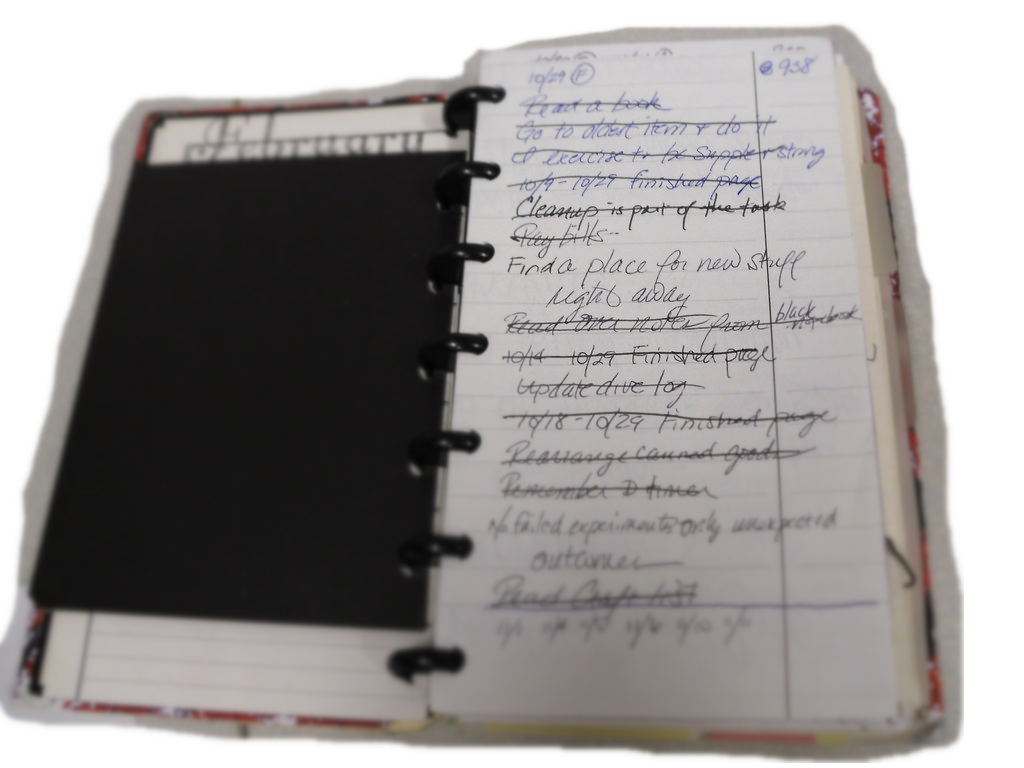 February
10/29 F
938
Read a book
Go to oldest item & do it
I exercise to be supple & strong
10/9 - 10/29 Finished page
Cleanup is part of the task
Pay bills
Find a place for new stuff
right away
Read over notes from black notebook
10/14 - 10/29 Finished page
Update dive log
10/18 - 10/29 Finished page
Rearrange canned goods
Remember D timer
No failed experiments only unexpected
outcomes
Read Craft list